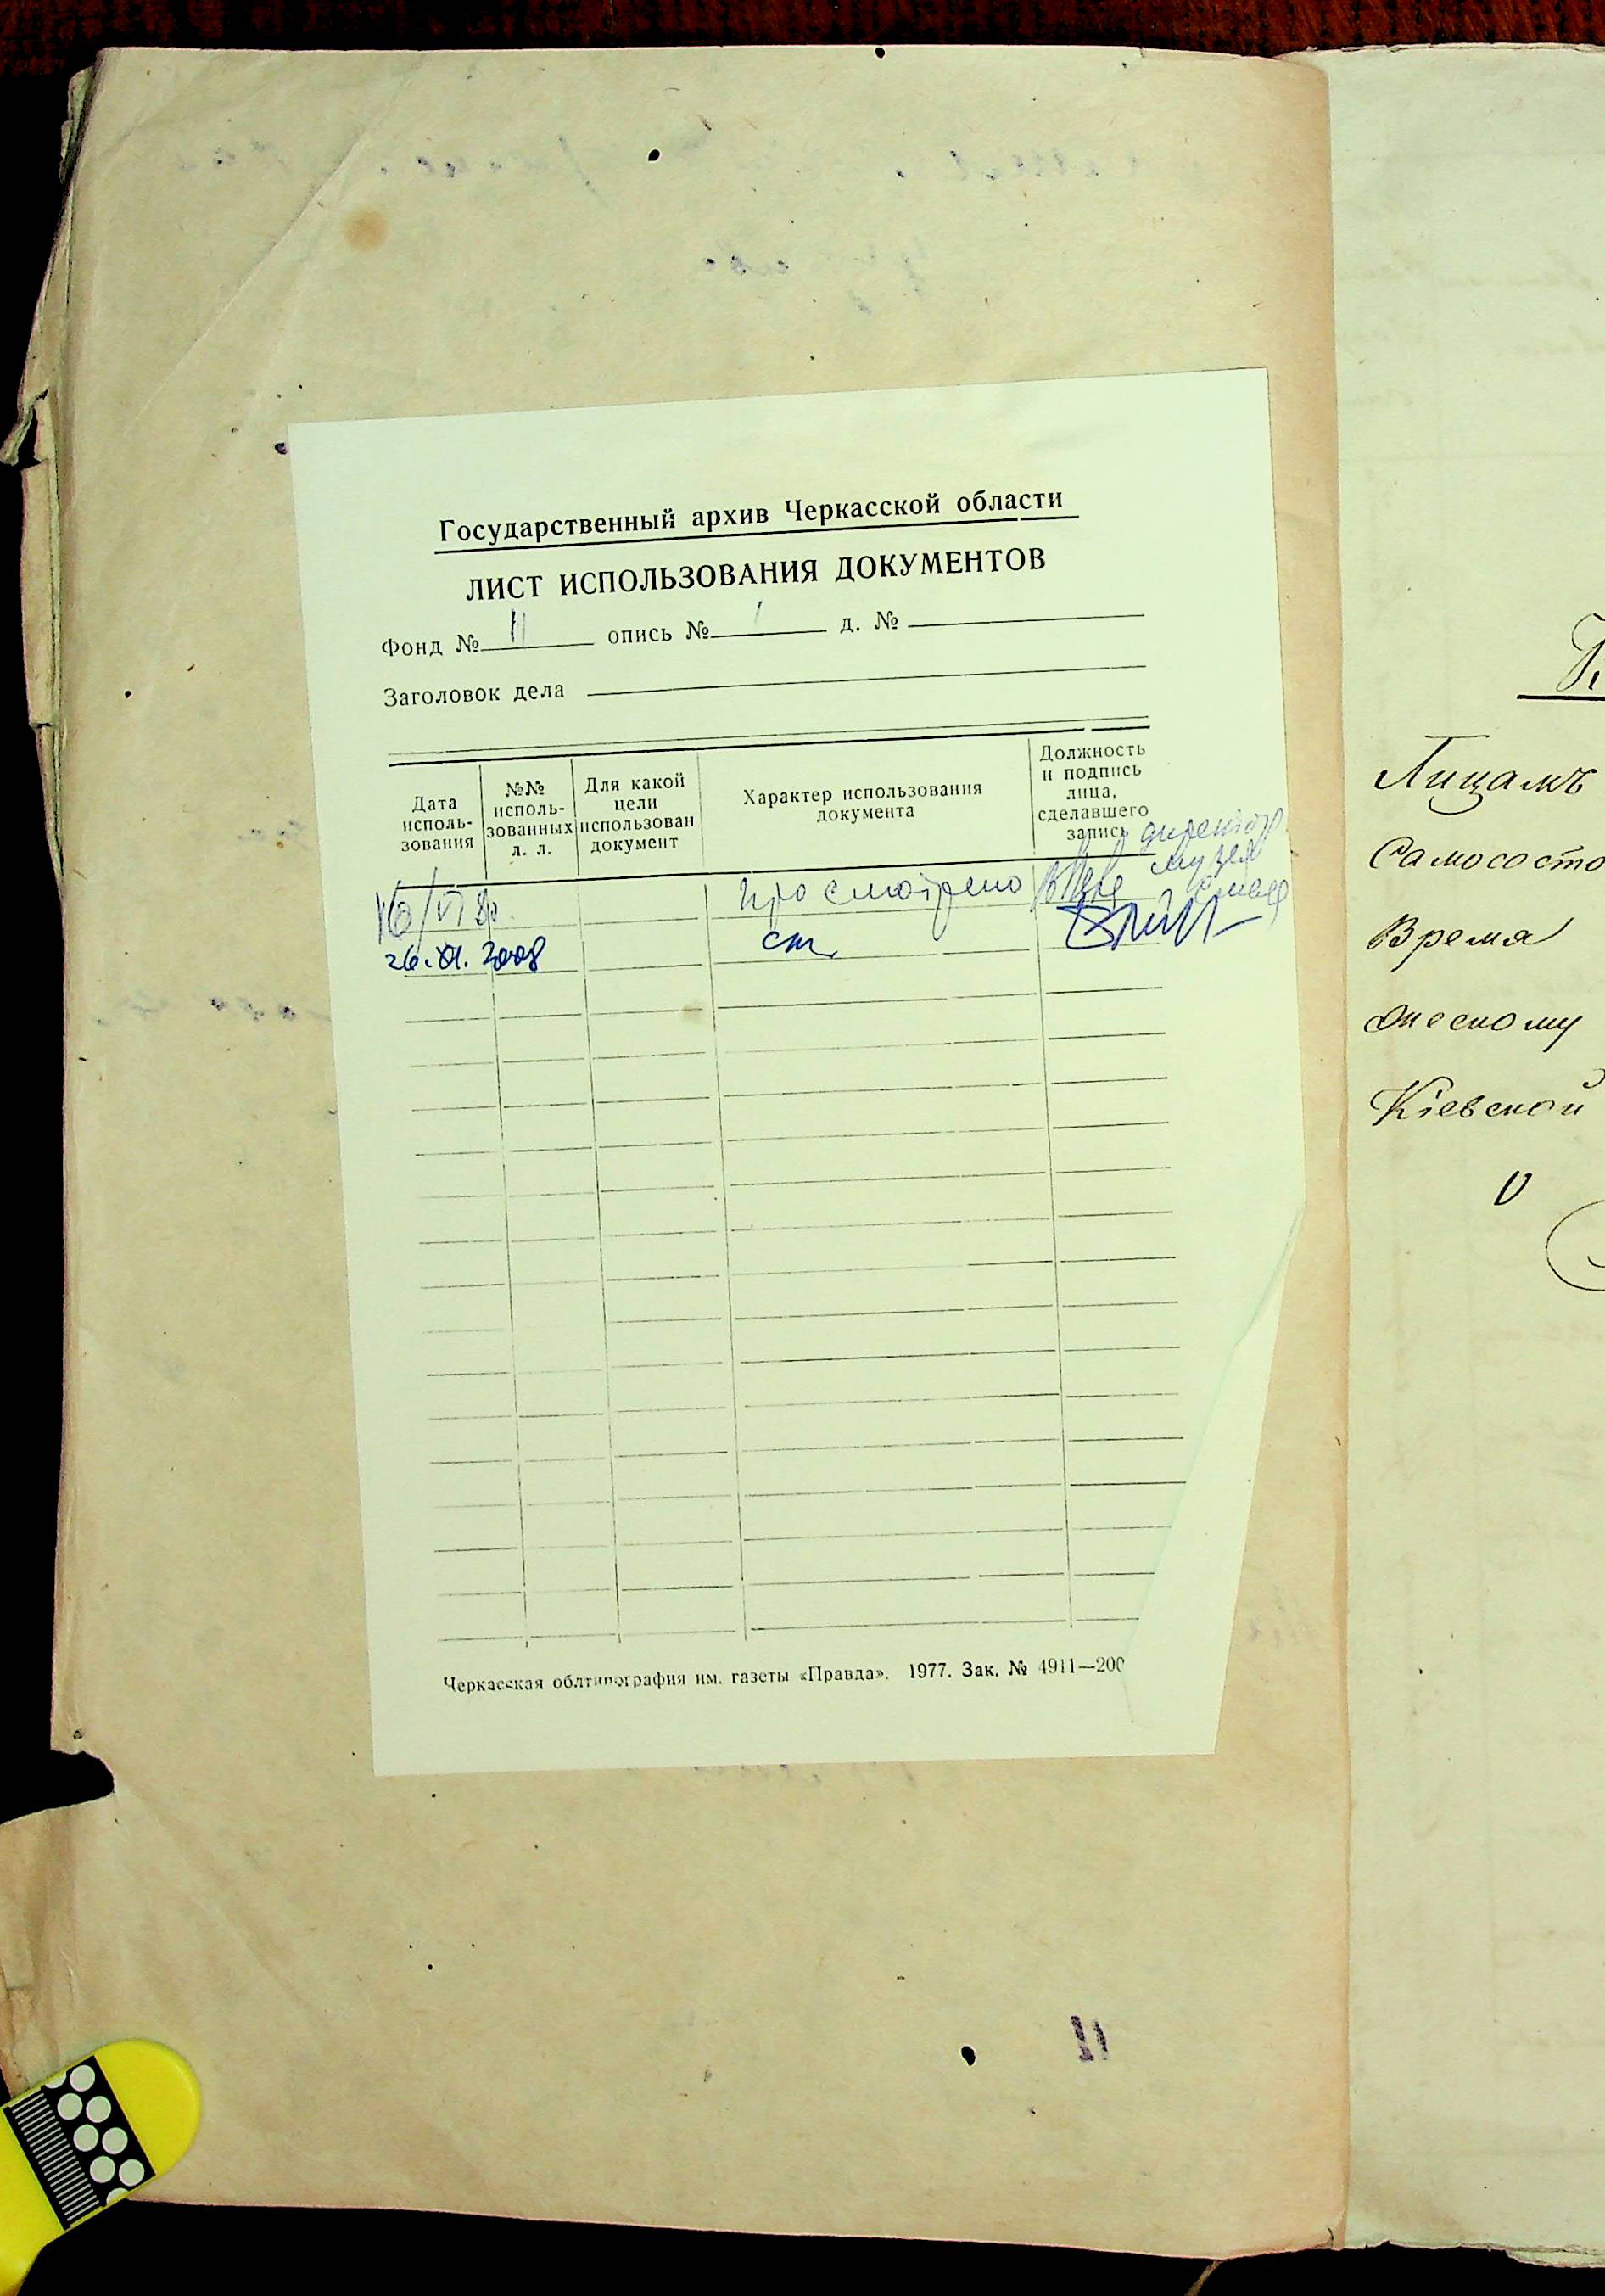 Государственный архив Черкасской области
ЛИСТ ИСПОЛЬЗОВАНИЯ ДОКУМЕНТОВ
Фонд № 11 опись № 1 д. №
Заголовок дела
Дата исполь-зования
№№ исполь-зованных л. л.
Для какой цели использован документ
Характер использования документа
Должность и подпись лица, сделавшего запись
директор
музея
просмотрено
26.XI.2008
Черкасская облтипография им. газеты «Правда». 1977. Зак. № 4911—200
Лицамъ
Самососто
Время
Кіевской